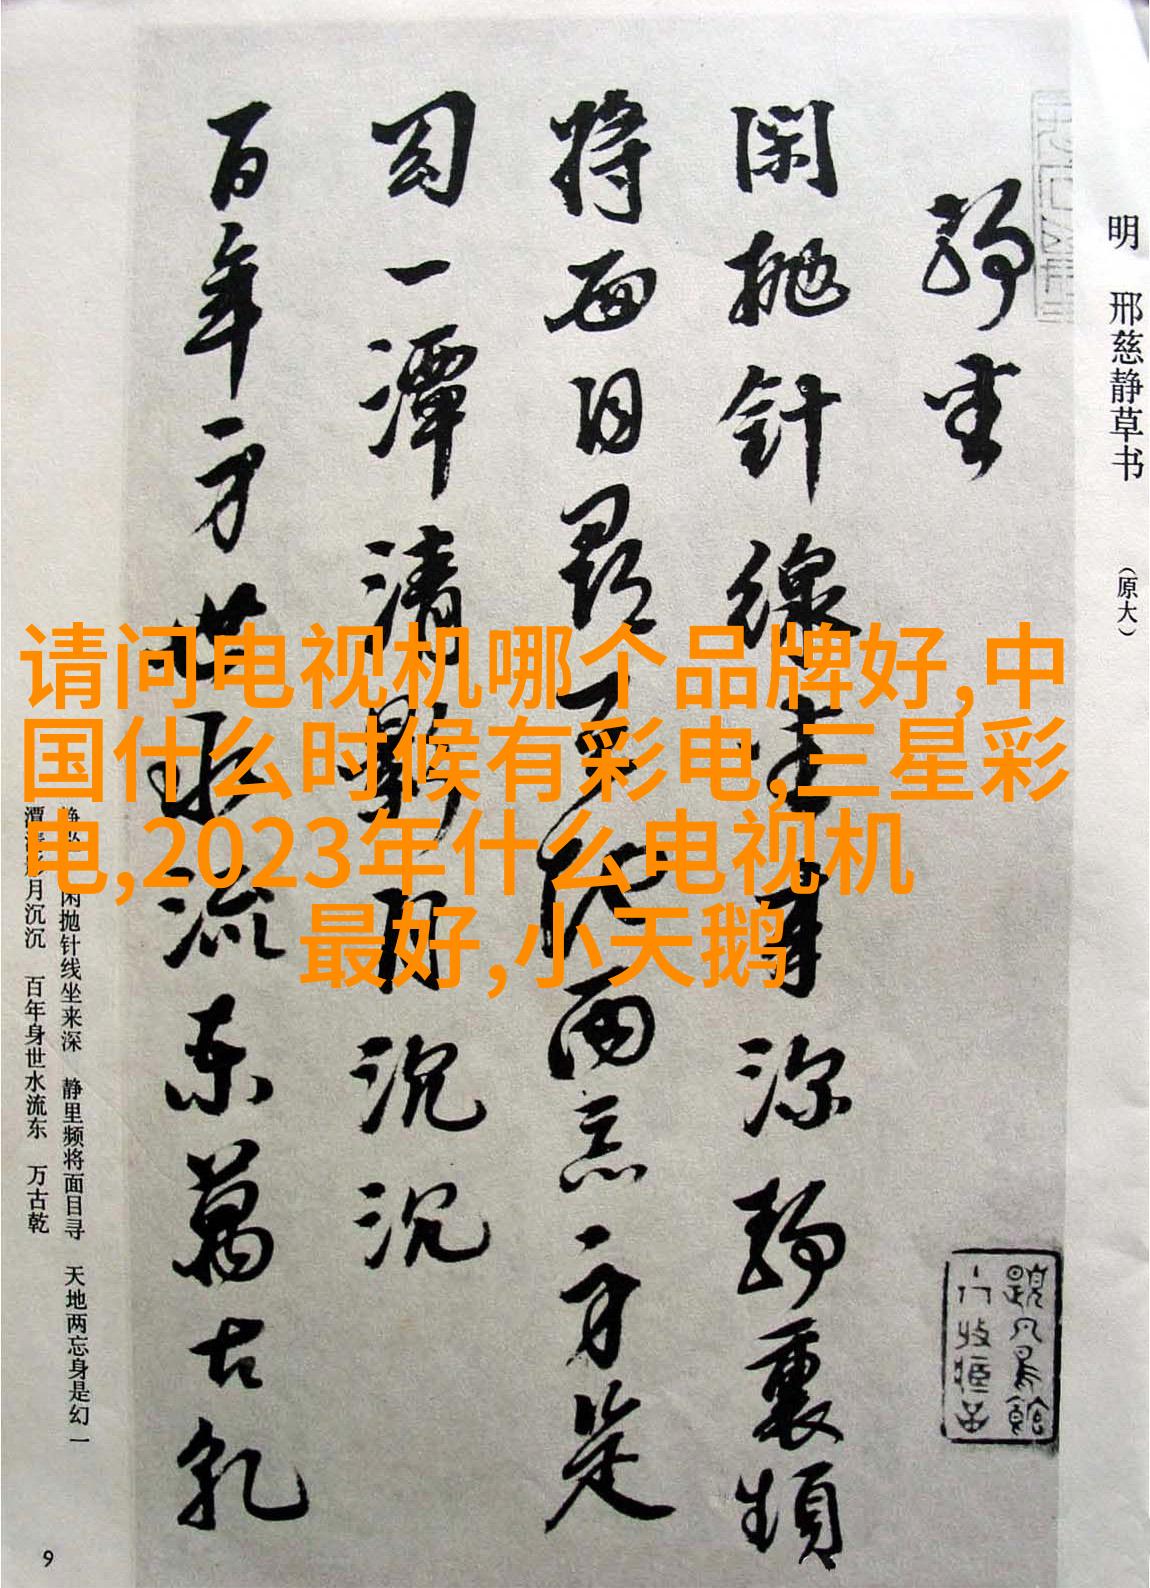 明 邢慈静草书 （原大）
静坐
閑抛針線坐来深静裏頻
将面目尋天地两忘身是
幻一潭清影月沉沉
百年身世水流東萬古乾
静坐 闲抛针线坐来深 静里频将面目寻 天地两忘身是幻 一
潭清影月沉沉 百年身世水流东 万古乾
9
请问电视机哪个品牌好,中
国什么时候有彩电,三星彩
电,2023年什么电视机
最好,小天鹅